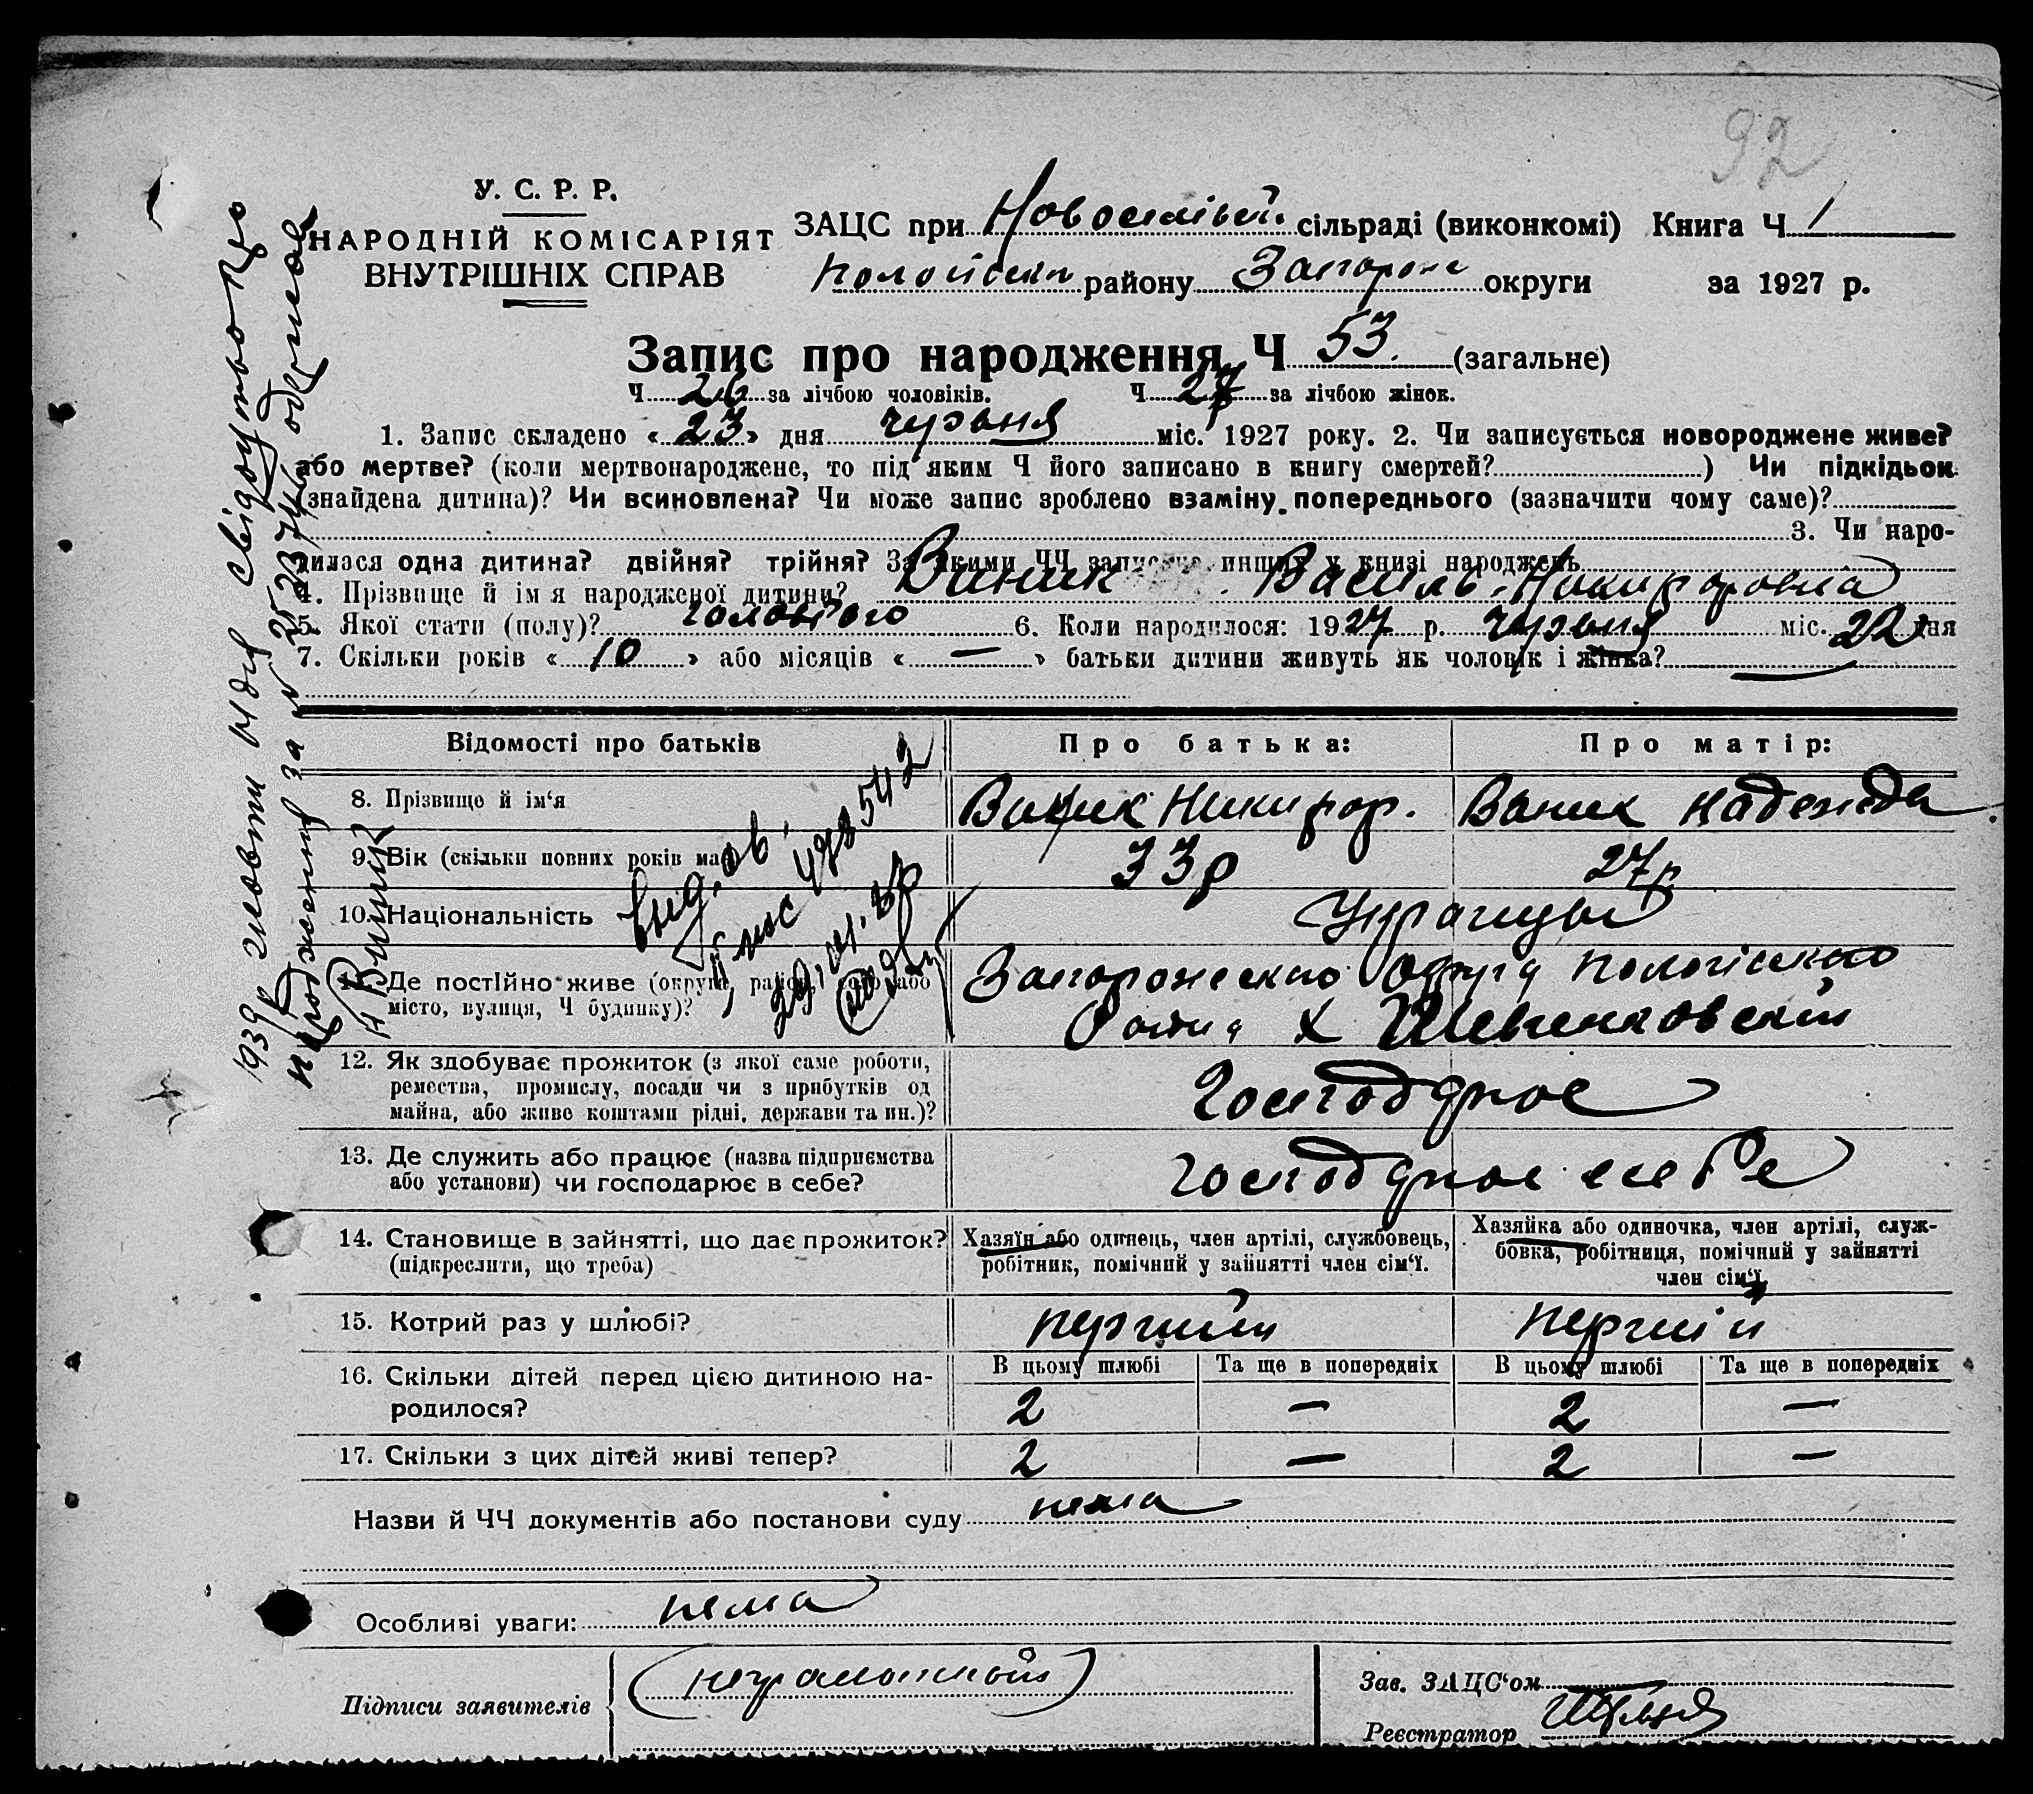 92
У. С. Р. Р.
НАРОДНІЙ КОМІСАРІЯТ
ВНУТРІШНІХ СПРАВ
ЗАЦС при Новоселівській сільраді (виконкомі) Книга Ч 1
району Запорож округи за 1927 р.
Запис про народження Ч 53. (загальне)
Ч 26 за лічбою чоловіків. Ч 27 за лічбою жінок.
1. Запис складено « 23 » дня червня міс. 1927 року. 2. Чи записується новороджене живе?
або мертве? (коли мертвонароджене, то під яким Ч його записано в книгу смертей? ) Чи підкідьок
(знайдена дитина)? Чи всиновлена? Чи може запис зроблено взаміну попереднього (зазначити чому саме)?
3. Чи наро-
дилася одна дитина? двійня? трійня? За якими ЧЧ записано инших у книзі народжень
4. Прізвище й ім'я народженої дитини? Виник Василь Никифоровна
5. Якої стати (полу)? 6. Коли народилося: 1927 р. червня міс. 22 дня
7. Скільки років « 10 » або місяців « — » батьки дитини живуть як чоловік і жінка?
Відомості про батьків
Про батька:
Про матір:
8. Прізвище й ім'я
Виник Никифор.
Ваник Надежда
9. Вік (скільки повних років має)
33р
27р
10. Національність
11. Де постійно живе (округа, район, село або
місто, вулиця, Ч будинку)?
Район х Шевченковский
12. Як здобуває прожиток (з якої саме роботи,
ремества, промислу, посади чи з прибутків од
майна, або живе коштами рідні, держави та ин.)?
13. Де служить або працює (назва підприємства
або установи) чи господарює в себе?
14. Становище в зайнятті, що дає прожиток?
(підкреслити, що треба)
Хазяїн або одинець, член артілі, службовець,
робітник, помічний у зайнятті член сім'ї.
Хазяйка або одиночка, член артілі, служ-
бовка, робітниця, помічний у зайнятті
член сім'ї
15. Котрий раз у шлюбі?
первший
перший
16. Скільки дітей перед цією дитиною на-
родилося?
В цьому шлюбі Та ще в попередніх В цьому шлюбі Та ще в попередніх
2 — 2 —
17. Скільки з цих дітей живі тепер?
2 — 2 —
Назви й ЧЧ документів або постанови суду нема
Особливі уваги: нема
Підписи заявителів
Зав. ЗАЦС'ом
Реєстратор